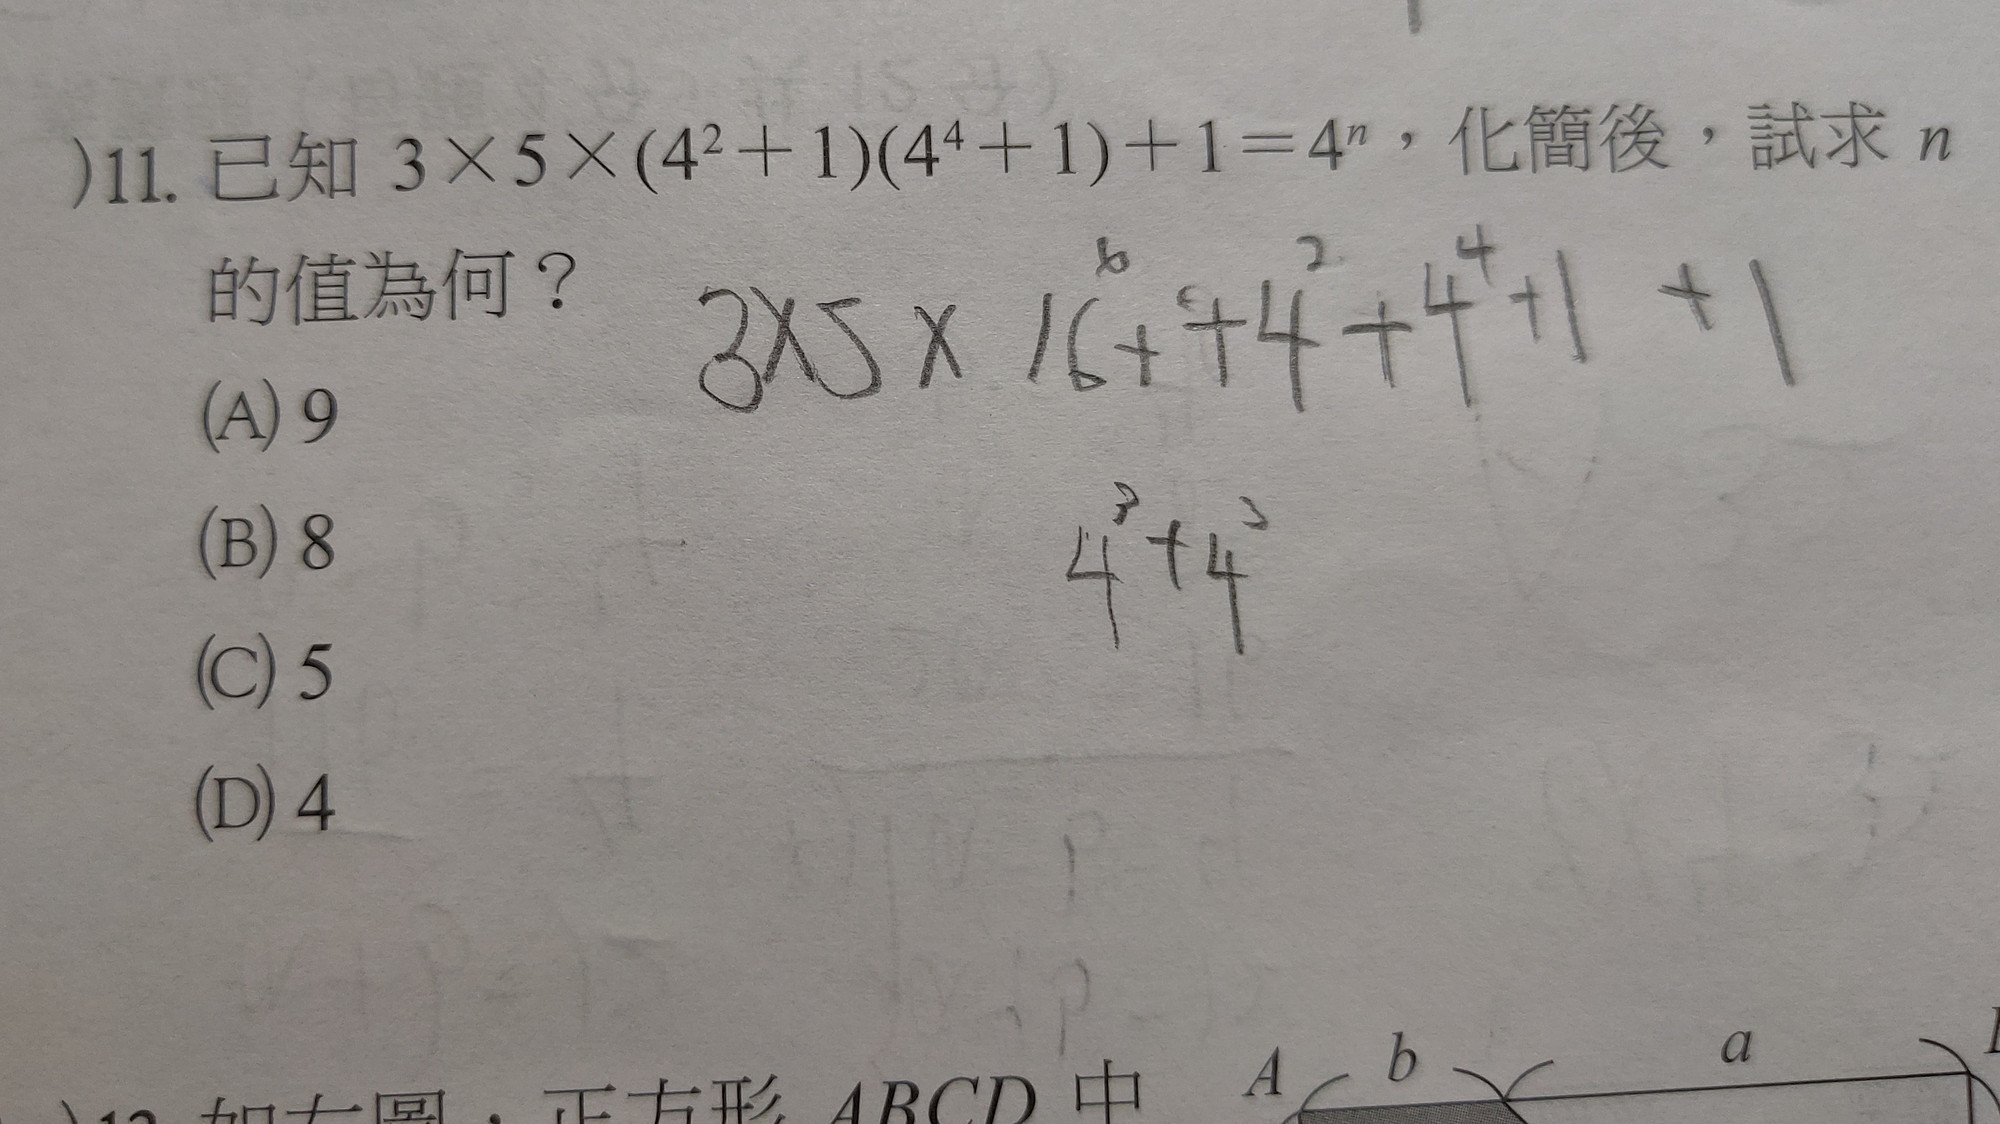 )11. 已知 3×5×(4²+1)(4⁴+1)+1=4ⁿ，化簡後，試求 n
的值為何？
3×5× 16⁶+ +4²+4⁴+1 +1
(A) 9
4³+4²
(B) 8
(C) 5
(D) 4
A b a
)12. 如右圖，正方形 ABCD 中